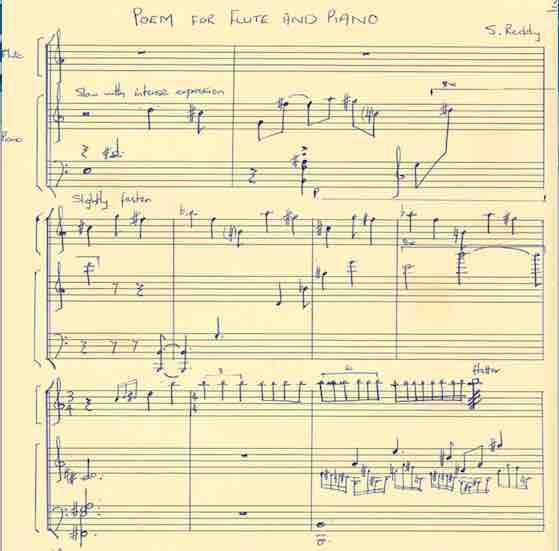 POEM FOR FLUTE AND PIANO
S. Reddy
Flute
Slow with intense expression
8va
Piano
P
Slightly faster
8va
3
4
3
6
flutter